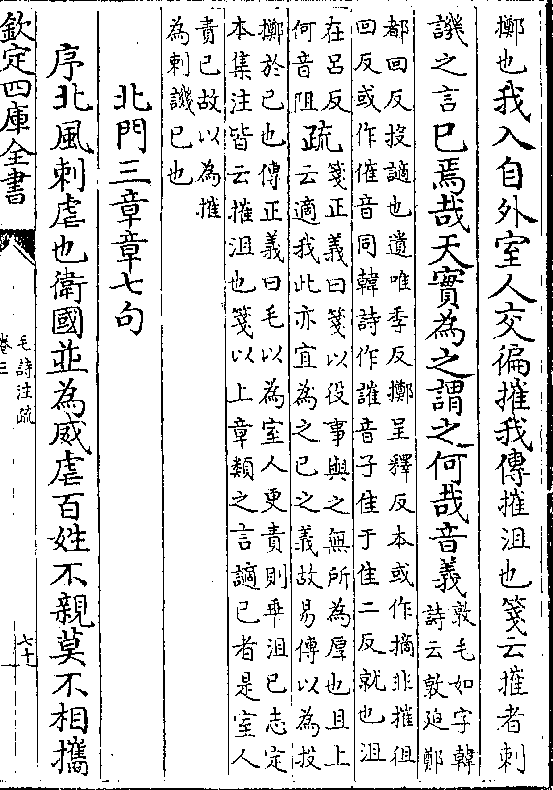 擲也我入自外室人交徧摧我傳摧沮也箋云摧者刺
譏之言已焉哉天實為之謂之何哉音義
敦毛如字韓
詩云敦迫鄭
都回反投讁也遺唯季反擲呈釋反本或作擿非摧徂
回反或作催音同韓詩作讙音子隹于隹二反就也沮
在呂反
何音阻
疏
箋正義曰箋以役事與之無所為厚也且上
云適我此亦宜為之已之義故易傳以為投
擲於已也傳正義曰毛以為室人更責則乖沮已志定
本集注皆云摧沮也箋以上章類之言讁已者是室人
責已故以為摧
為刺譏已也
北門三章章七句
序北風刺虐也衛國並為威虐百姓不親莫不相攜
欽定四庫全書
毛詩注疏
卷三
六十